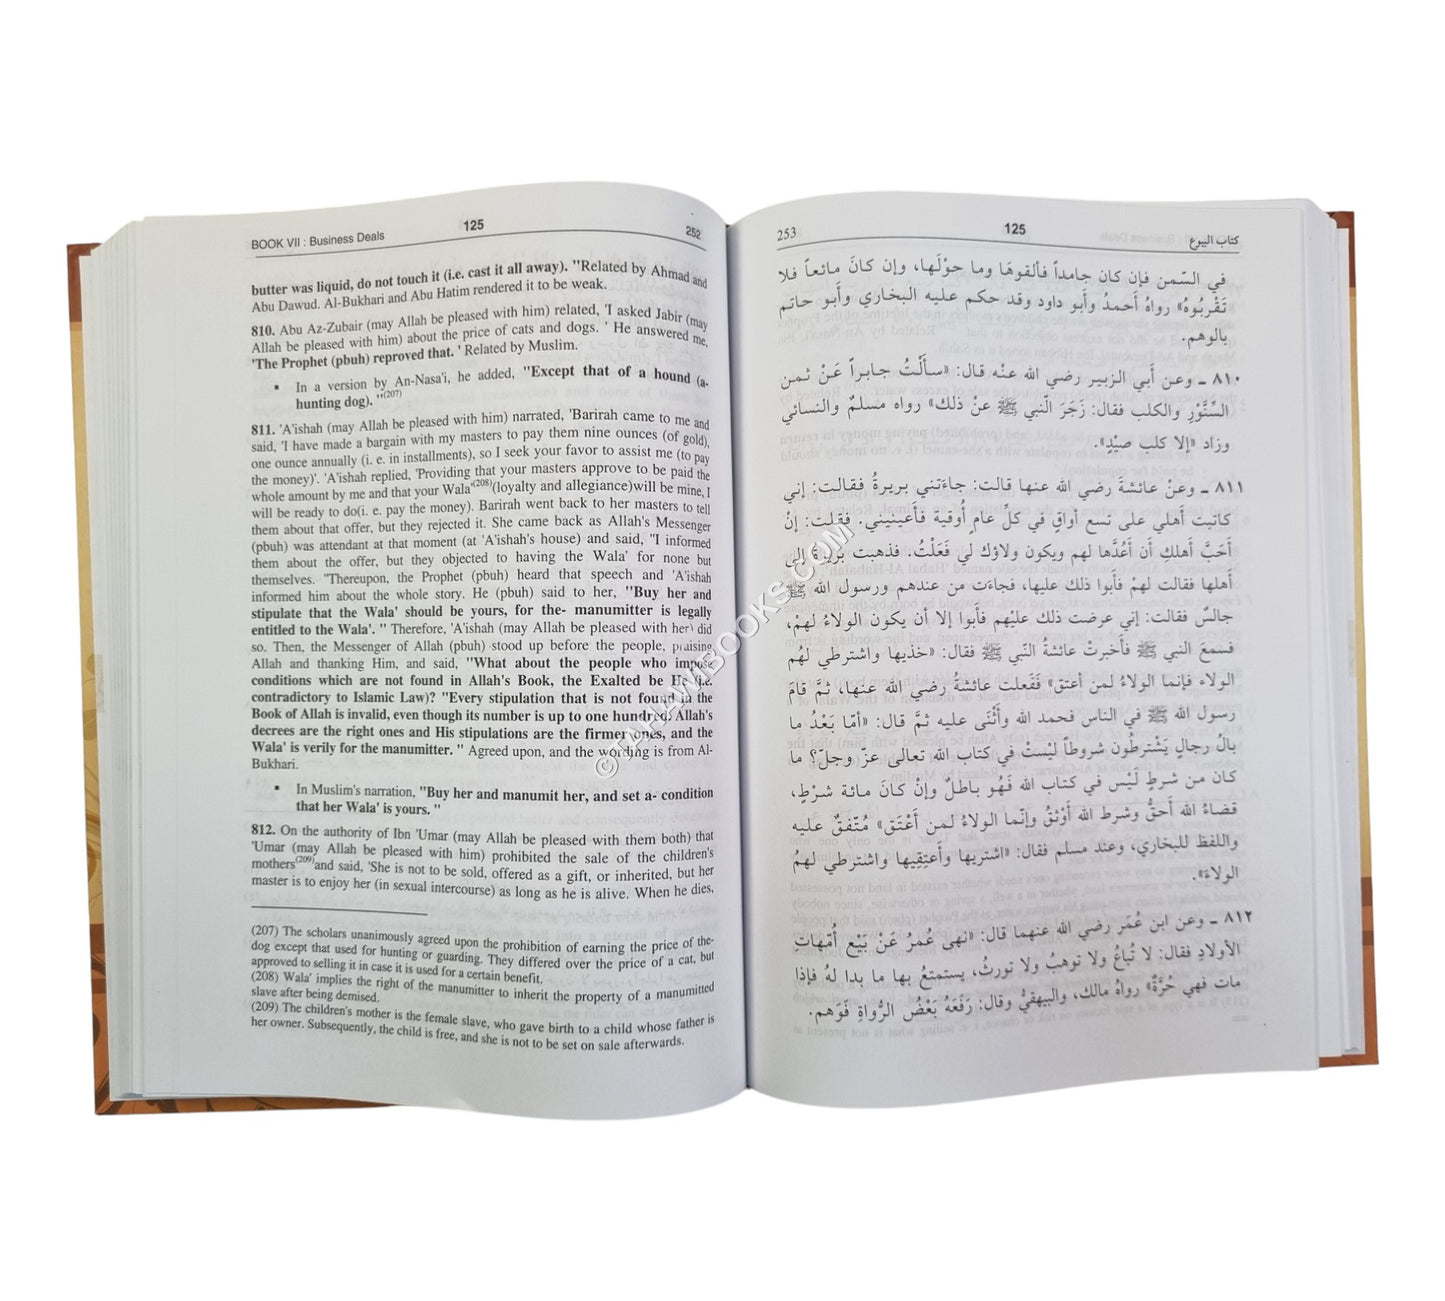 BOOK VII : Business Deals 125 252
butter was liquid, do not touch it (i.e. cast it all away). "Related by Ahmad and
Abu Dawud. Al-Bukhari and Abu Hatim rendered it to be weak.
810. Abu Az-Zubair (may Allah be pleased with him) related, 'I asked Jabir (may
Allah be pleased with him) about the price of cats and dogs. ' He answered me,
'The Prophet (pbuh) reproved that. ' Related by Muslim.
▪ In a version by An-Nasa'i, he added, "Except that of a hound (a-
hunting dog). "(207)
811. 'A'ishah (may Allah be pleased with him) narrated, 'Barirah came to me and
said, 'I have made a bargain with my masters to pay them nine ounces (of gold),
one ounce annually (i. e. in installments), so I seek your favor to assist me (to pay
the money)'. 'A'ishah replied, 'Providing that your masters approve to be paid the
whole amount by me and that your Wala'(208)(loyalty and allegiance)will be mine, I
will be ready to do(i. e. pay the money). Barirah went back to her masters to tell
them about that offer, but they rejected it. She came back as Allah's Messenger
(pbuh) was attendant at that moment (at 'A'ishah's house) and said, "I informed
them about the offer, but they objected to having the Wala' for none but
themselves. "Thereupon, the Prophet (pbuh) heard that speech and 'A'ishah
informed him about the whole story. He (pbuh) said to her, "Buy her and
stipulate that the Wala' should be yours, for the- manumitter is legally
entitled to the Wala'. " Therefore, 'A'ishah (may Allah be pleased with her) did
so. Then, the Messenger of Allah (pbuh) stood up before the people, praising
Allah and thanking Him, and said, "What about the people who impose
conditions which are not found in Allah's Book, the Exalted be He (i.e.
contradictory to Islamic Law)? "Every stipulation that is not found in the
Book of Allah is invalid, even though its number is up to one hundred. Allah's
decrees are the right ones and His stipulations are the firmer ones, and the
Wala' is verily for the manumitter. " Agreed upon, and the wording is from Al-
Bukhari.
▪ In Muslim's narration, "Buy her and manumit her, and set a- condition
that her Wala' is yours. "
812. On the authority of Ibn 'Umar (may Allah be pleased with them both) that
'Umar (may Allah be pleased with him) prohibited the sale of the children's
mothers(209)and said, 'She is not to be sold, offered as a gift, or inherited, but her
master is to enjoy her (in sexual intercourse) as long as he is alive. When he dies,
(207) The scholars unanimously agreed upon the prohibition of earning the price of the-
dog except that used for hunting or guarding. They differed over the price of a cat, but
approved to selling it in case it is used for a certain benefit.
(208) Wala' implies the right of the manumitter to inherit the property of a manumitted
slave after being demised.
(209) The children's mother is the female slave, who gave birth to a child whose father is
her owner. Subsequently, the child is free, and she is not to be set on sale afterwards.
253 125 كتاب البيوع
في السّمن فإن كان جامداً فألقوهَا وما حوْلَها، وإن كانَ مائعاً فلا
تَقْربُوهُ» رواهُ أَحمدُ وأَبو داود وقد حكم عليه البخاري وأَبو حاتم
بالوهم.
٨١٠ ـ وعن أَبي الزبير رضي الله عنْه قال: «سأَلْتُ جابراً عَنْ ثمن
السِّنَّوْرِ والكلب فقال: زَجَرَ النّبي ﷺ عنْ ذلك» رواه مسلمٌ والنسائي
وزاد «إلا كلب صيْدٍ».
٨١١ ـ وعنْ عائشةَ رضي الله عنها قالت: جاءَتني بريرةُ فقالت: إني
كاتبت أَهلي على تسع أواقٍ في كلِّ عامٍ أُوقية فأَعينيني. فقلت: إنْ
أَحَبَّ أهلكِ أن أَعُدَّها لهم ويكون ولاؤك لي فَعَلْتُ. فذهبت بَريرةُ إلى
أَهلها فقالت لهمْ فأَبوا ذلك عليها، فجاءَت من عندهم ورسول الله ﷺ
جالسٌ فقالت: إني عرضت ذلك عليْهم فأَبوا إلا أن يكون الولاءُ لهمْ،
فسمعَ النبي ﷺ فأَخبرتْ عائشةُ النّبي ﷺ فقال: «خذيها واشترطي لهُم
الولاء فإنما الولاءُ لمن أعتق» فَفَعلت عائشةُ رضي الله عنها، ثمَّ قامَ
رسول الله ﷺ في الناس فحمد الله وأَثْنَى عليه ثمَّ قال: «أمّا بَعْدُ ما
بالُ رجالٍ يَشْترطُون شروطاً ليْستْ في كتاب الله تعالى عزّ وجلّ؟ ما
كان من شرطٍ لَيْس في كتاب الله فَهُو باطلٌ وإنْ كانَ مائة شرْطٍ،
قضاءُ الله أَحقُّ وشرط الله أوْثقُ وإنّما الولاءُ لمن أعْتَق» مُتّفقٌ عليه
واللفظ للبخاري، وعند مسلم فقال: «اشتريها وأَعتِقِيها واشترطي لهمُ
الولاءَ».
٨١٢ ـ وعن ابن عُمَر رضي الله عنهما قال: «نهى عُمرُ عَنْ بَيْع أُمّهاتِ
الأولادِ فقال: لا تُباعُ ولا توهبُ ولا تورثُ، يستمتعُ بها ما بدا لهُ فإذا
مات فهي حُرَّةٌ» رواهُ مالك، والبيهقيُّ وقال: رَفَعَهُ بَعْضُ الرُّواةِ فَوَهم.
©TAHAWIBOOKS.COM